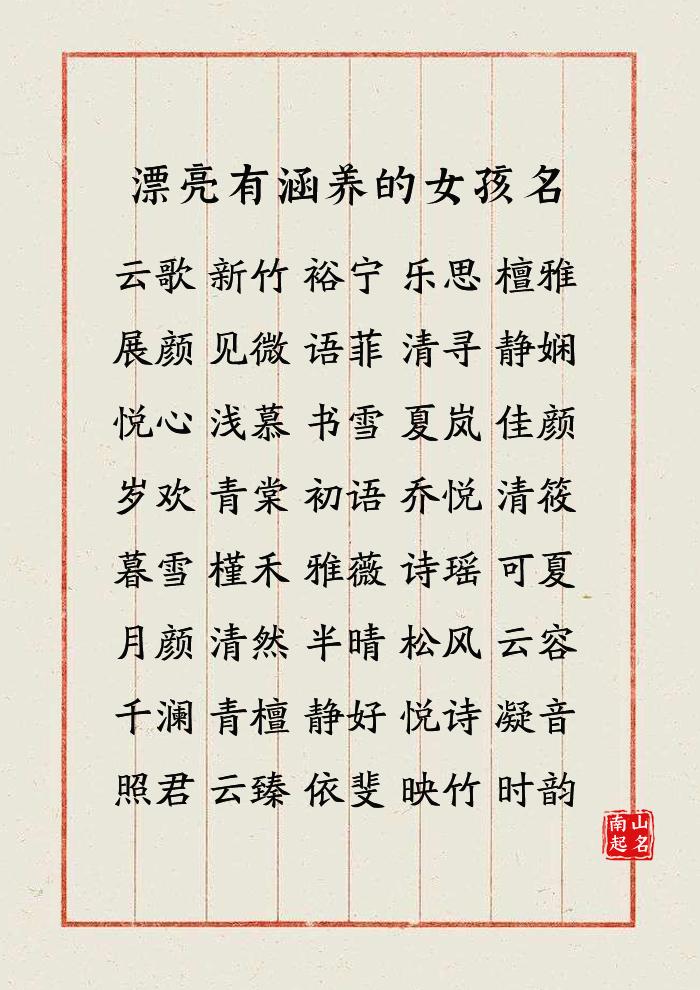 漂亮有涵养的女孩名
云歌 新竹 裕宁 乐思 檀雅
展颜 见微 语菲 清寻 静娴
悦心 浅慕 书雪 夏岚 佳颜
岁欢 青棠 初语 乔悦 清筱
暮雪 槿禾 雅薇 诗瑶 可夏
月颜 清然 半晴 松风 云容
千澜 青檀 静好 悦诗 凝音
照君 云臻 依斐 映竹 时韵
南山
起名